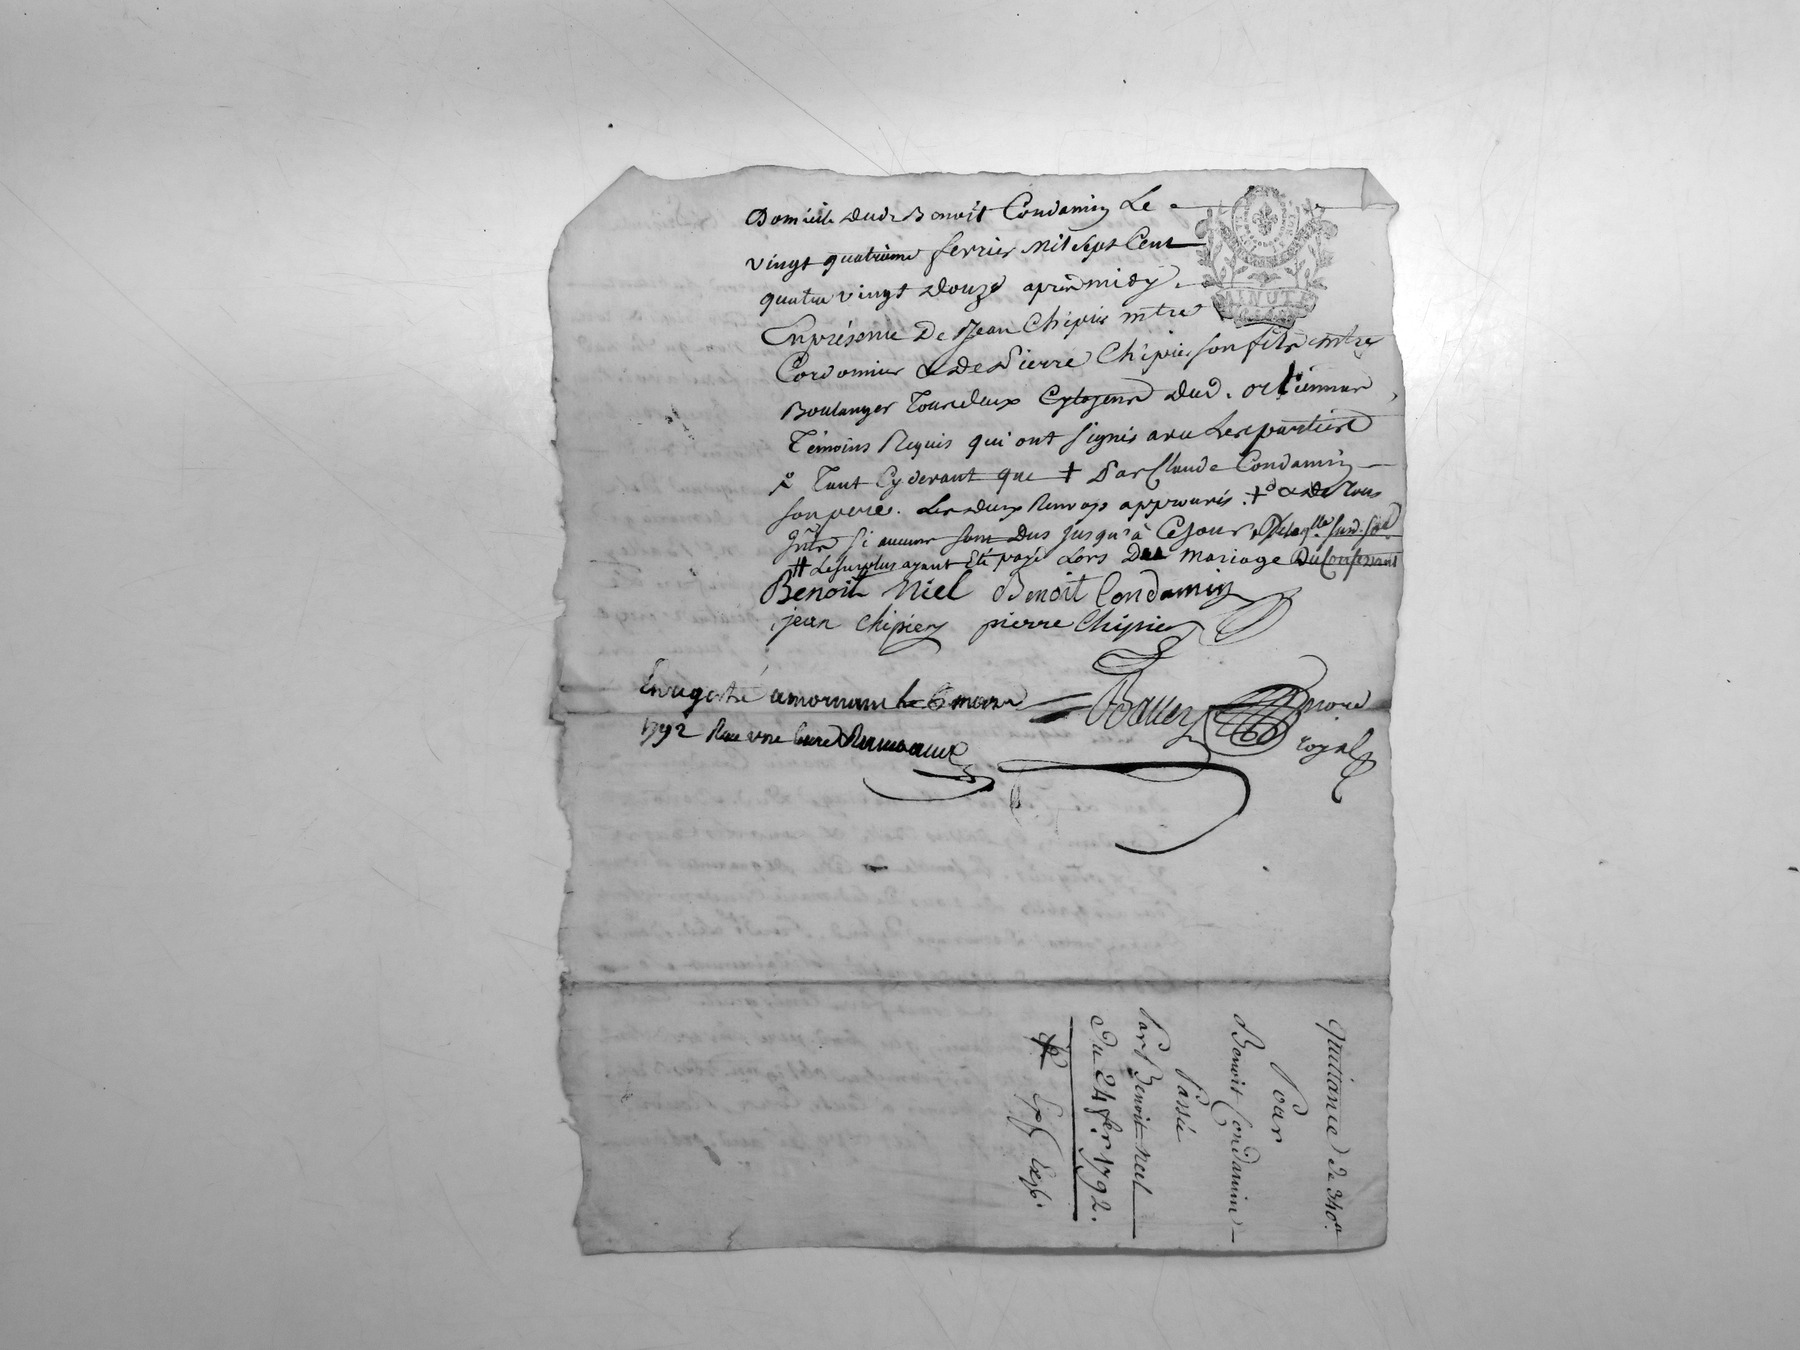 Domicile dud. Benoit Condamin Le
vingt quatrieme fevrier Mil Sept Cent
quatre vingt Douze après midy.
MINUTE
En présence De Jean Chipier mtre
Cordonnier & de Pierre Chipier son fils mtre
Boulanger Tous deux Cytoyens dud. orliennas
Témoins Requis qui ont signés avec Les parties
Tant Cy devant que + Par Claude Condamin
son pere. Les deux Renvoys approuvés. + & de Tous
Si aucuns sont Dus jusqu'à Ce jour
# Le surplus ayant été payé Lors Du Mariage Du Confessant
Benoit Niel Benoit Condamin
jean chipier pierre Chipier
Enregistré a mornant le 6 mars
1792 Reçu une livre
nore
royal
Quittance de 340
Pour
Benoit Condamin
Passée
Par Benoit Neel
Du 24 fer. 1792.